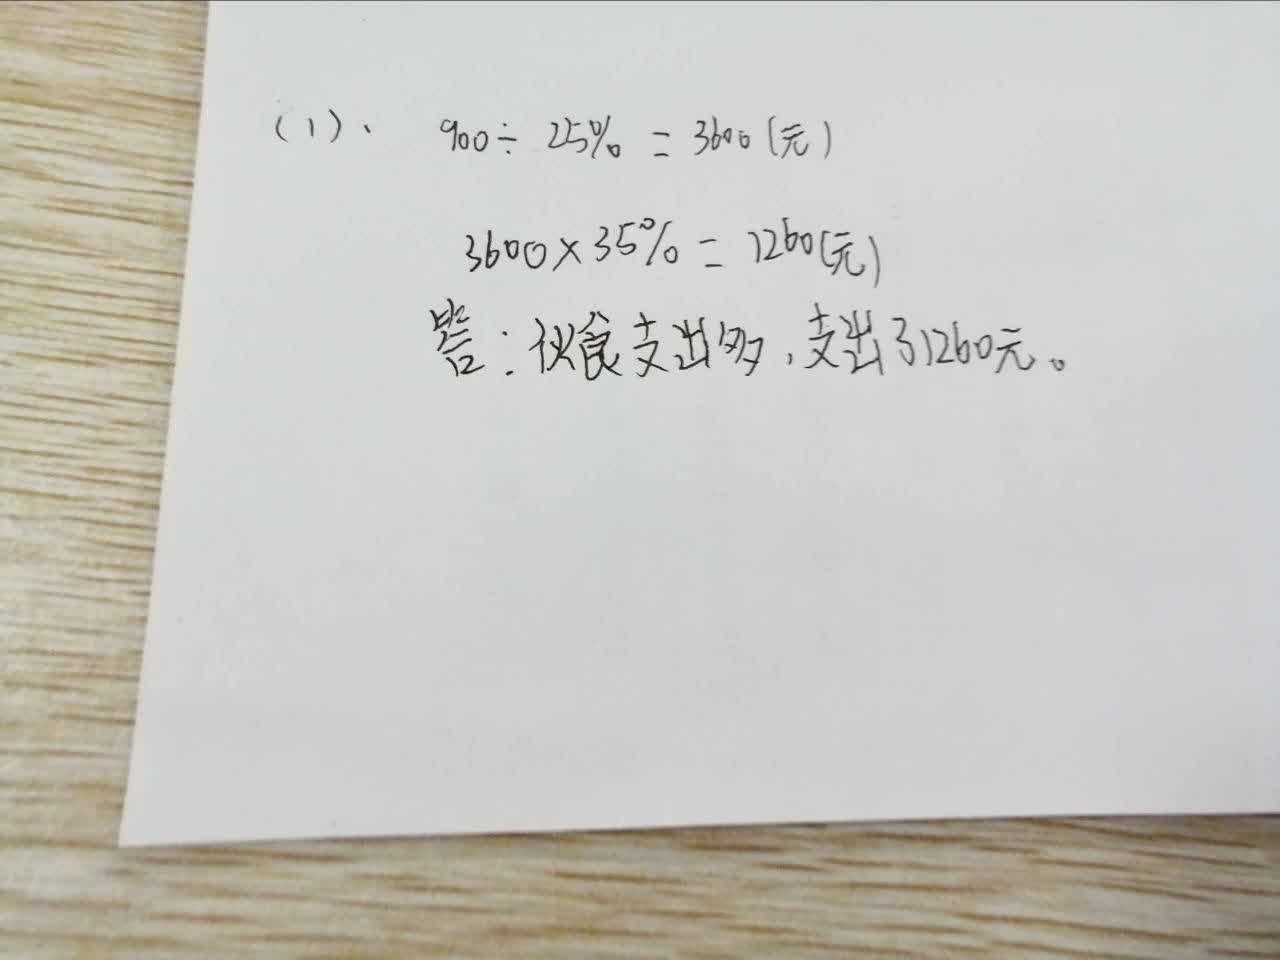 (1)、 900÷25%=3600(元)
3600×35%=1260(元)
答:伙食支出多,支出了1260元。